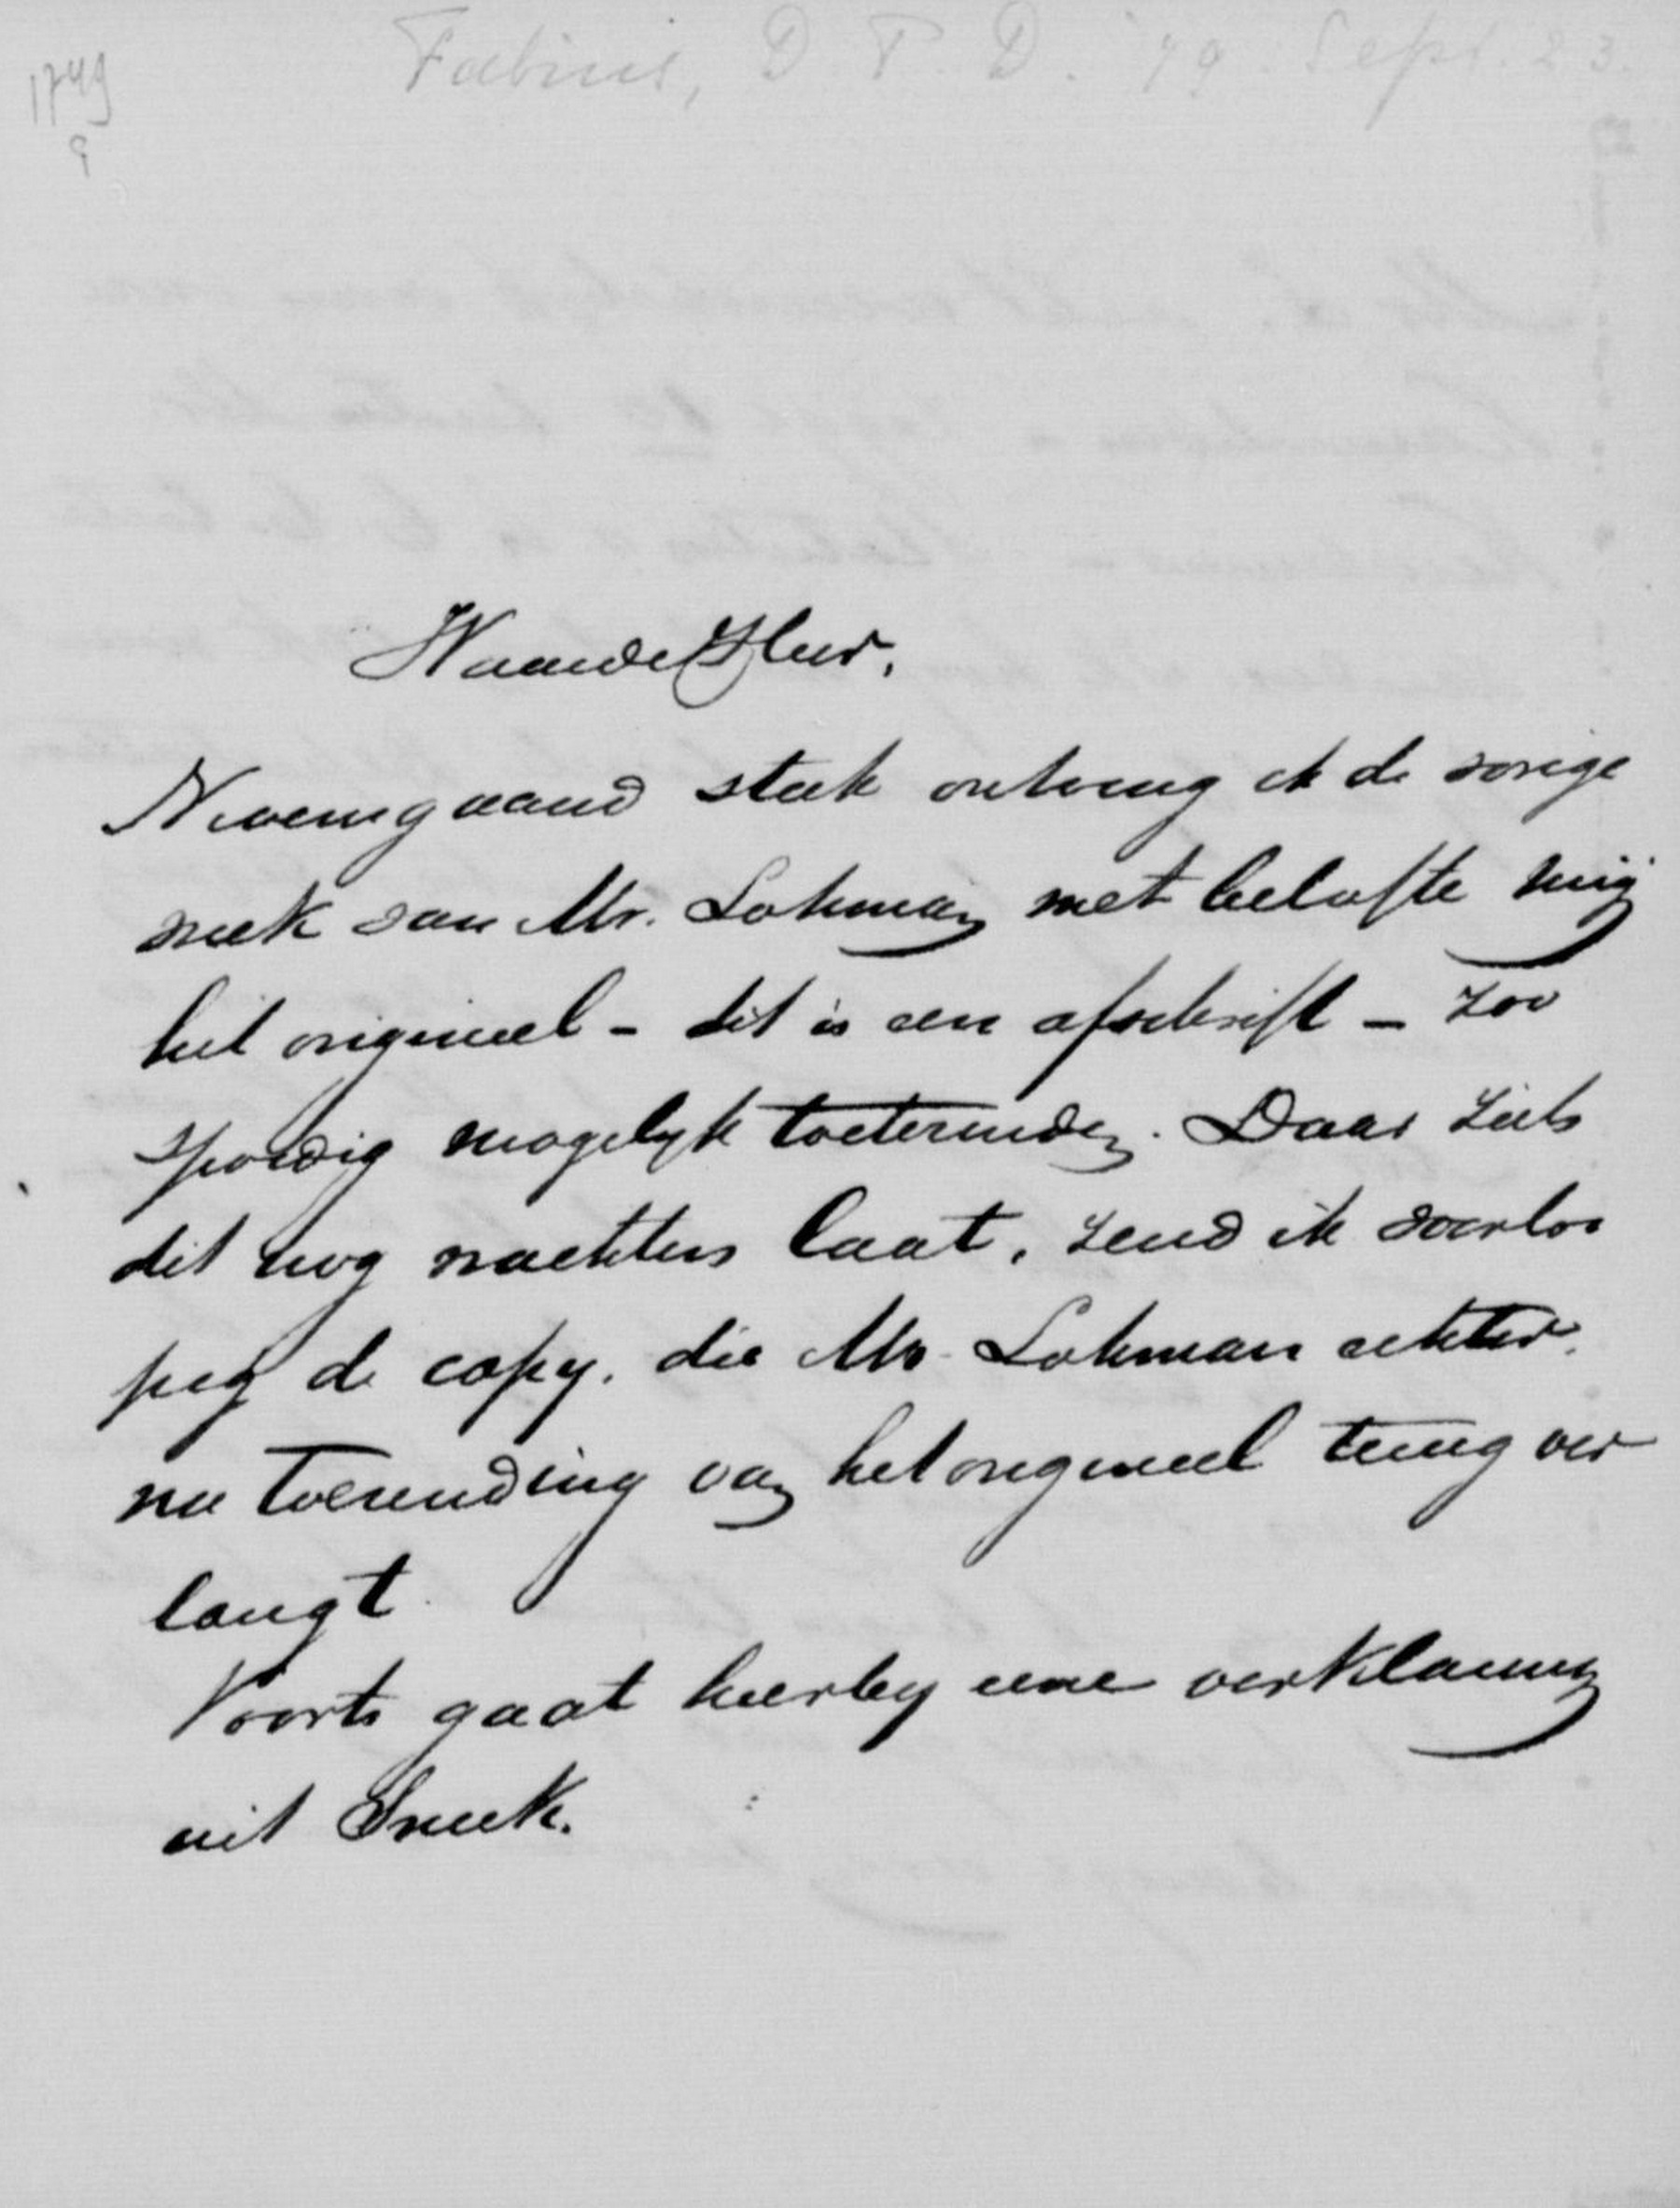 Fabius, D. P. D. '79. Sept. 23.
1749
Waarde Heer,
Nevensgaand stuk ontving ik de vorige
week van Mr. Lohman met belofte mij
het origineel - dit is een afschrift - zoo
spoedig mogelijk toetezenden. Daar zulks
dit nog wachten laat, zend ik voorloo
pig de copy, die Mr. Lohman echter
na toezending van het origineel terug ver
langt.
Voorts gaat hierbij eene verklaring
uit Sneek.